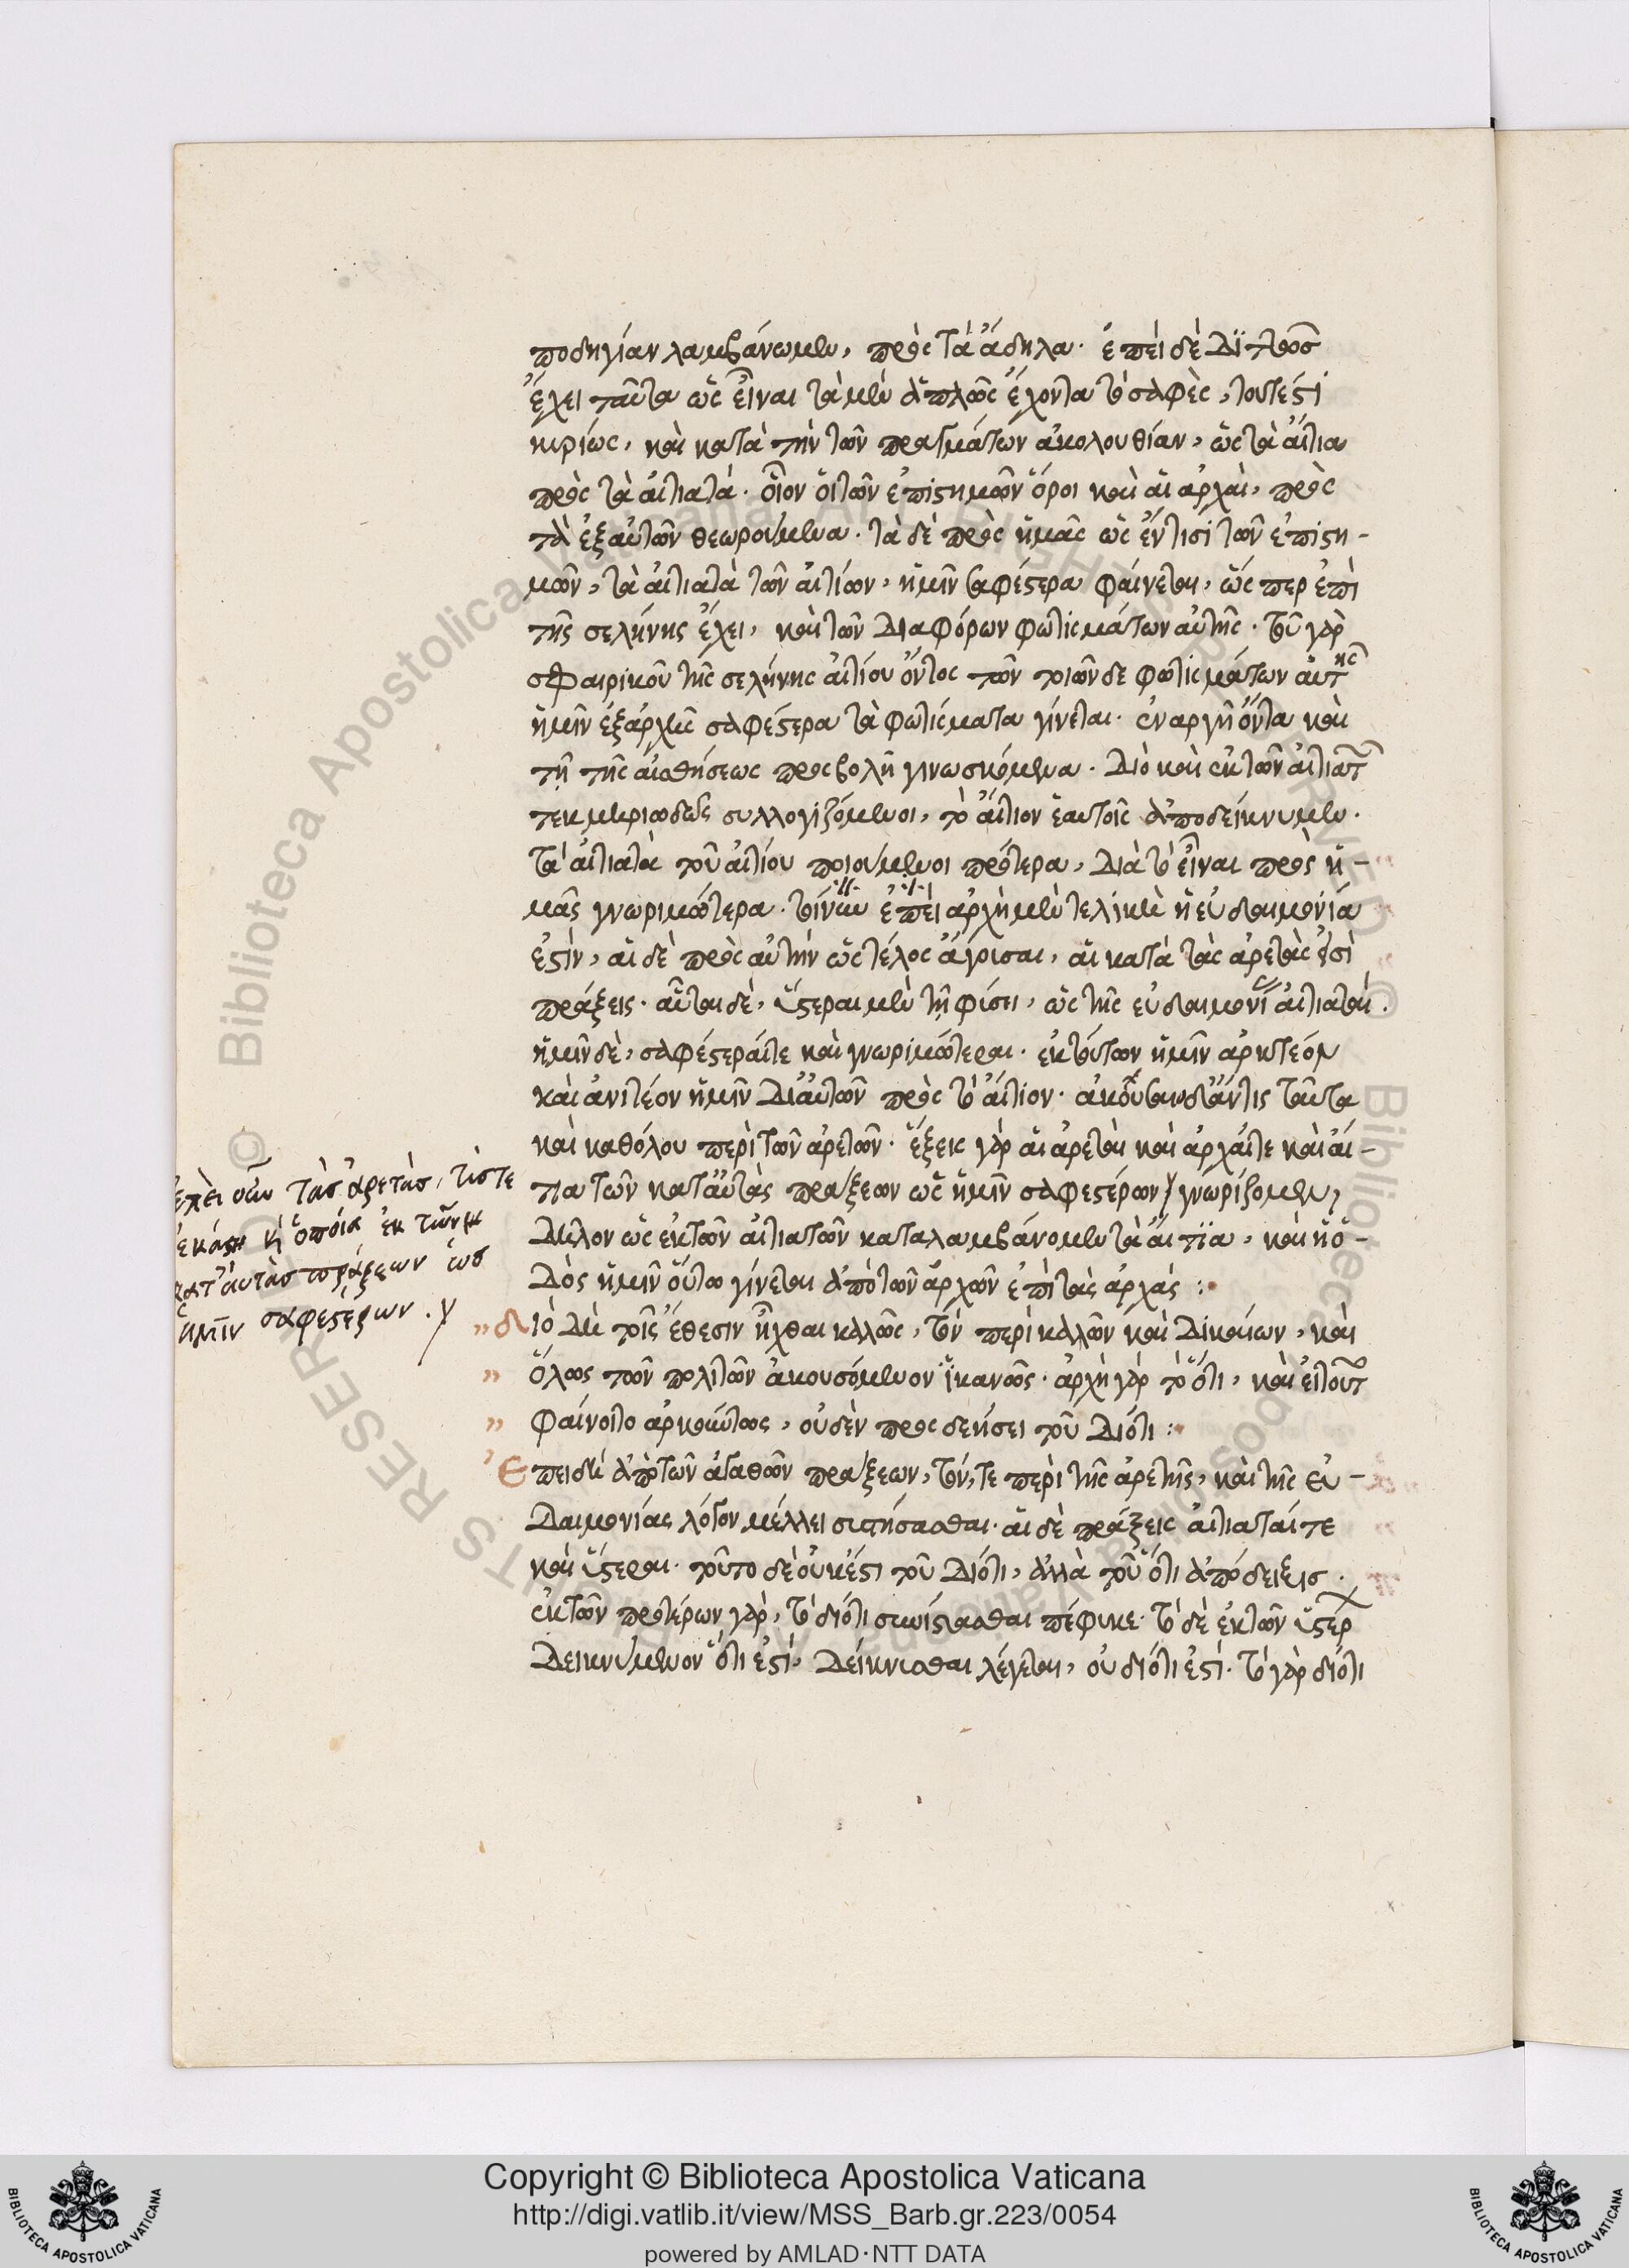 ποδηγίαν λαμβάνωμεν, πρὸς τὰ ἄδηλα. ἐπεὶ δὲ διττῶς
ἔχει ταῦτα ὡς εἶναι τὰ μὲν ἁπλῶς ἔχοντα τὸ σαφὲς, τουτέστι
κυρίως, καὶ κατὰ τὴν τῶν πραγμάτων ἀκολουθίαν, ὡς τὰ αἴτια
πρὸς τὰ αἰτιατά. οἷον οἱ τῶν ἐπιστημῶν ὅροι καὶ αἱ ἀρχαὶ, πρὸς
τὰ ἐξ αὐτῶν θεωρούμενα. τὰ δὲ πρὸς ἡμᾶς ὡς ἔν τισι τῶν ἐπιστη-
μῶν, τὰ αἰτιατὰ τῶν αἰτίων, ἡμῖν σαφέστερα φαίνεται, ὥσπερ ἐπὶ
τῆς σελήνης ἔχει, καὶ τῶν διαφόρων φωτισμάτων αὐτῆς. τοῦ γὰρ
σφαιρικοῦ τῆς σελήνης αἰτίου ὄντος τῶν τοιῶνδε φωτισμάτων αὐτῆς
ἡμῖν ἐξ ἀρχῆς σαφέστερα τὰ φωτίσματα γίνεται. ἐναργῆ ὄντα καὶ
τῇ τῆς αἰσθήσεως προσβολῇ γινωσκόμενα. διὸ καὶ ἐκ τῶν αἰτιατῶν
τεκμηριωδῶς συλλογιζόμενοι, τὸ αἴτιον ἑαυτοῖς ἀποδείκνυμεν.
τὰ αἰτιατὰ τοῦ αἰτίου ποιούμενοι πρότερα, διὰ τὸ εἶναι πρὸς ἡ-
μᾶς γνωριμώτερα. τοίνυν ἐπεὶ ἀρχὴ μὲν τελικὴ ἡ εὐδαιμονία
ἐστὶν, αἱ δὲ πρὸς αὐτὴν ὡς τέλος ἄγουσαι, αἱ κατὰ τὰς ἀρετὰς εἰσὶ
πράξεις. αὗται δὲ, ὕστεραι μὲν τῇ φύσει, ὡς τῆς εὐδαιμονίας αἰτιαταί.
ἡμῖν δὲ, σαφέστεραί τε καὶ γνωριμώτεραι. ἐκ τούτων ἡμῖν ἀρκτέον
καὶ ἀνιτέον ἡμῖν δι' αὐτῶν πρὸς τὸ αἴτιον. ταῦτα
καὶ καθόλου περὶ τῶν ἀρετῶν. ἕξεις γὰρ αἱ ἀρεταὶ καὶ ἀρχαί τε καὶ αἴ-
τια τῶν κατ' αὐτὰς πράξεων ὡς ἡμῖν σαφεστέρων γνωρίζομεν,
δῆλον ὡς ἐκ τῶν αἰτιατῶν καταλαμβάνομεν τὰ αἴτια, καὶ ἡ ὁ-
δὸς ἡμῖν οὕτω γίνεται ἀπὸ τῶν ἀρχῶν ἐπὶ τὰς ἀρχάς :
ἐπεὶ οὖν τὰς ἀρετὰς, τίς τε
ἑκάστη ἢ ὁποία ἐκ τῶν
κατ' αὐτὰς πράξεων ὡς
ἡμῖν σαφεστέρων.
" διὸ δὴ τοῖς ἔθεσιν ἦχθαι καλῶς, τὸν περὶ καλῶν καὶ δικαίων, καὶ
" ὅλως τῶν πολιτῶν ἀκουσόμενον ἱκανῶς. ἀρχὴ γὰρ τὸ ὅτι, καὶ εἰ τοῦτο
" φαίνοιτο ἀρκούντως, οὐδὲν προσδεήσει τοῦ διότι :
Ἐπειδὴ ἀπὸ τῶν ἀγαθῶν πράξεων, τόν, τε περὶ τῆς ἀρετῆς, καὶ τῆς εὐ-
δαιμονίας λόγον μέλλει συστήσασθαι. αἱ δὲ πράξεις αἰτιαταί τε
καὶ ὕστεραι. τοῦτο δὲ οὐκ ἔστι τοῦ διότι, ἀλλὰ τοῦ ὅτι ἀπόδειξις.
ἐκ τῶν προτέρων γὰρ, τὸ διότι συνίστασθαι πέφυκε. τὸ δὲ ἐκ τῶν ὑστέρων
δεικνύμενον ὅτι ἐστὶ, δείκνυσθαι λέγεται, οὐ διότι ἐστί. τὸ γὰρ διότι
Copyright © Biblioteca Apostolica Vaticana
http://digi.vatlib.it/view/MSS_Barb.gr.223/0054
powered by AMLAD·NTT DATA